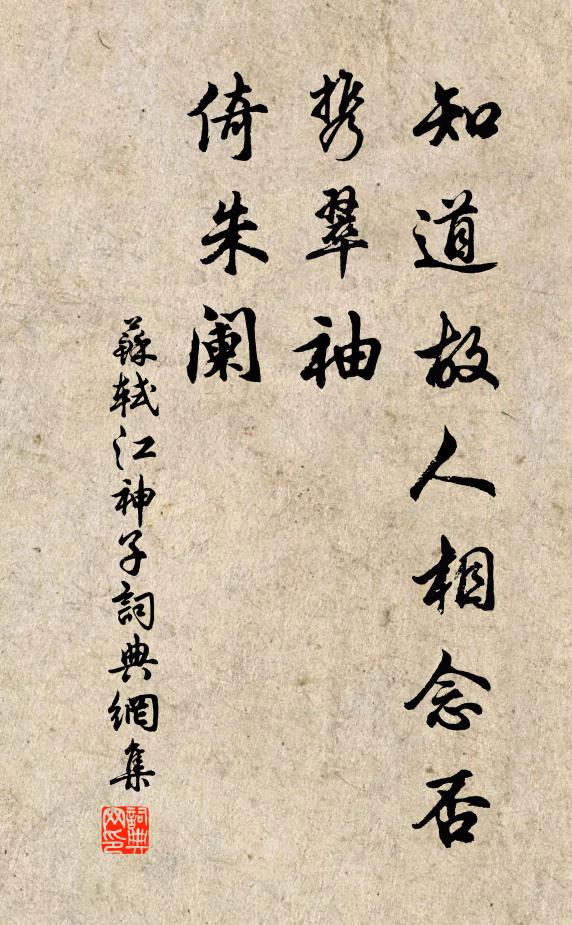 知道故人相念否
携翠袖
倚朱阑
蘇軾江神子詞典網集
詞典网印